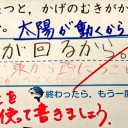 たつと、かげのむきがか
太陽が動くから
が回るから。
東から西に
終わったら、もう一度
を
使って書きましょう。